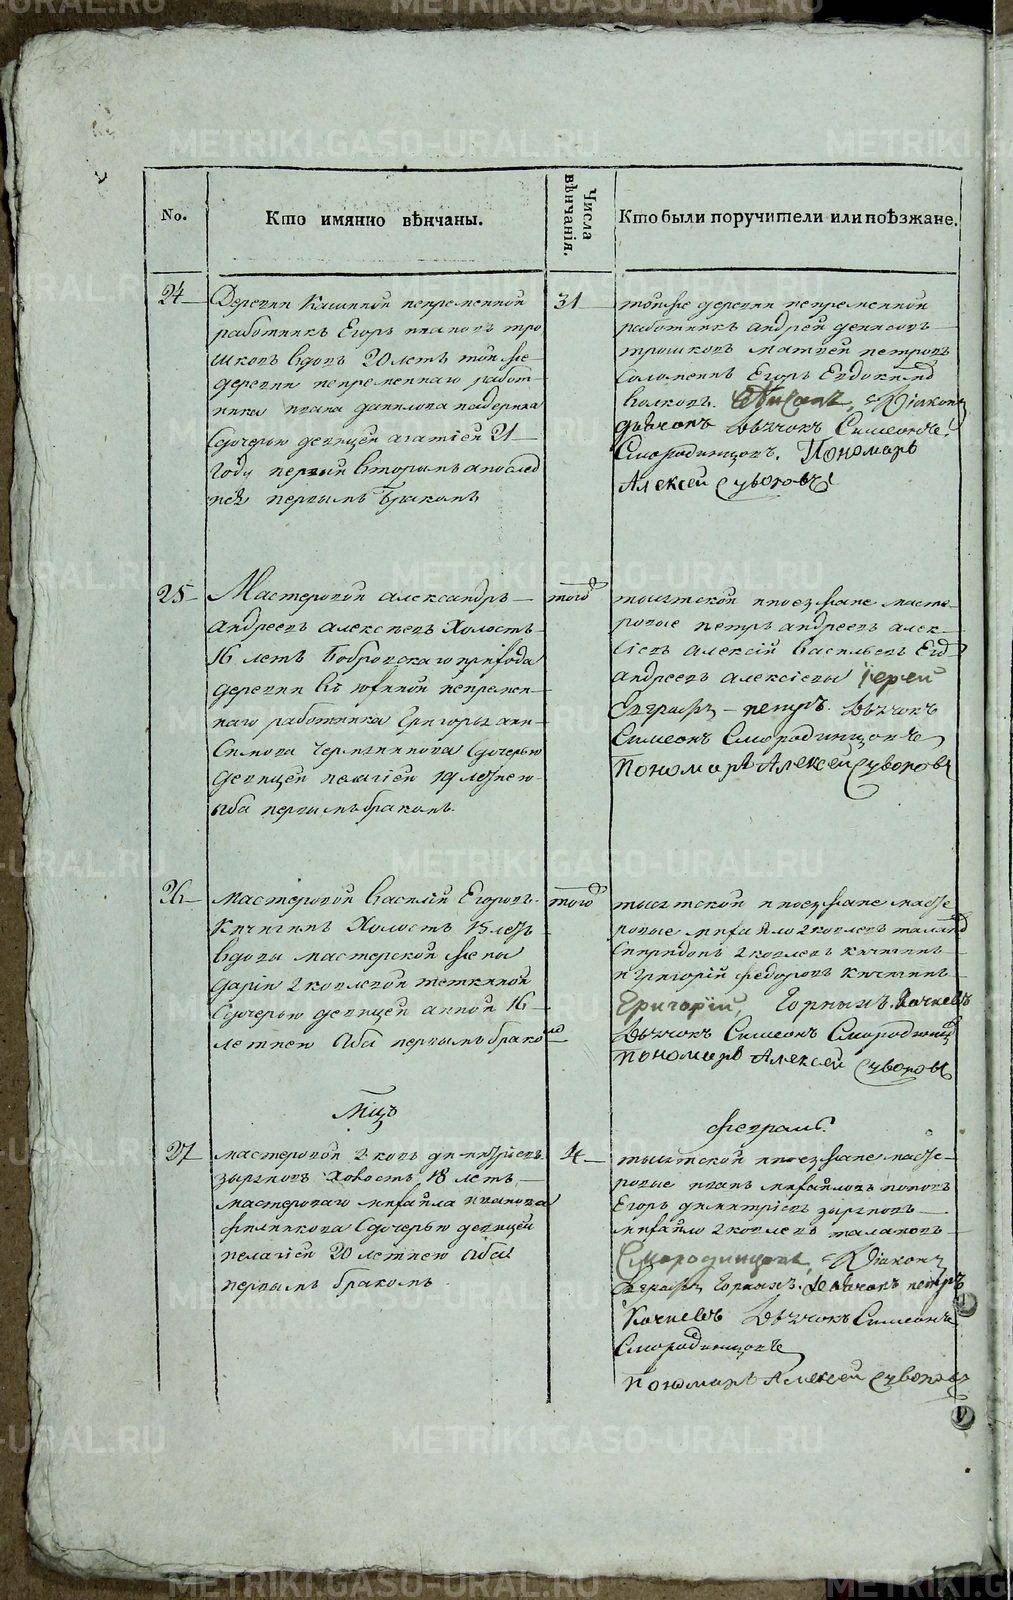 METRIKI.GASO-URAL.RU
No.
Кто имянно вѣнчаны.
Числа вѣнчанія.
Кто были поручители или поѣзжане.
24
Деревни Кашиной непременной
работникъ Егоръ ивановъ тро
шковъ вдовъ 20 летъ той же
деревни непременнаго работ-
ника ивана данилова
Сдочерью девицей агатіей 21
году первый вторымъ а послед
нея первымъ бракомъ
31
тойже деревни непременной
работникъ андрей денисовъ
трошковъ матвей петровъ
Соломеинъ Егоръ Евдокимо
волковъ. Діаконъ
дьячокъ Симеонъ
Смородинцовъ. Пономарь
Алексей Суворовъ
25
Мастеровой александръ
андреевъ алексеевъ Холостъ
16 летъ Бобровскаго прихода
деревни непремен-
наго работника Григорья ани-
Симова Сдочерью
девицей пелагіей 19 летнею
оба первымъ бракомъ.
того
тысятской и поезжане масте-
ровые петръ андреевъ алек-
сіевъ алексій васильевъ
андреевъ алексіевы Іерей
петръ. дьячокъ
Симеонъ Смородинцовъ
Пономарь Алексей Суворовъ
26
мастеровой василій Егоровъ
Кичигинъ Холостъ 15 летъ
вдовы мастерской жены
дарьи яковлевой теткиной
Сдочерью девицей анной 16
летнею оба первымъ браком
того
тысятской и поезжане масте
ровые михайло яковлевъ
Спиридонъ яковлевъ кичигинъ
и григорій федоровъ кичигинъ
Григорій, Горныхъ. Качневъ
Дьячокъ Симеонъ Смородинцо
Пономарь Алексей Суворовъ
Мцъ
февраль.
27
мастеровой яковъ дмитріевъ
зыряновъ Холостъ 18 летъ
мастероваго михайла иванова
филинкова Сдочерью девицей
пелагіей 20 летнею оба
первымъ бракомъ
4
тысятской и поезжане масте-
ровые иванъ михайловъ поповъ
Егоръ димитріевъ зыряновъ
михайло яковлевъ талановъ
Смородинцовъ, Діаконъ
Горныхъ. дьячокъ петръ
Качневъ Дьячокъ Симеонъ
Смородинцовъ
Пономарь Алексей Суворовъ